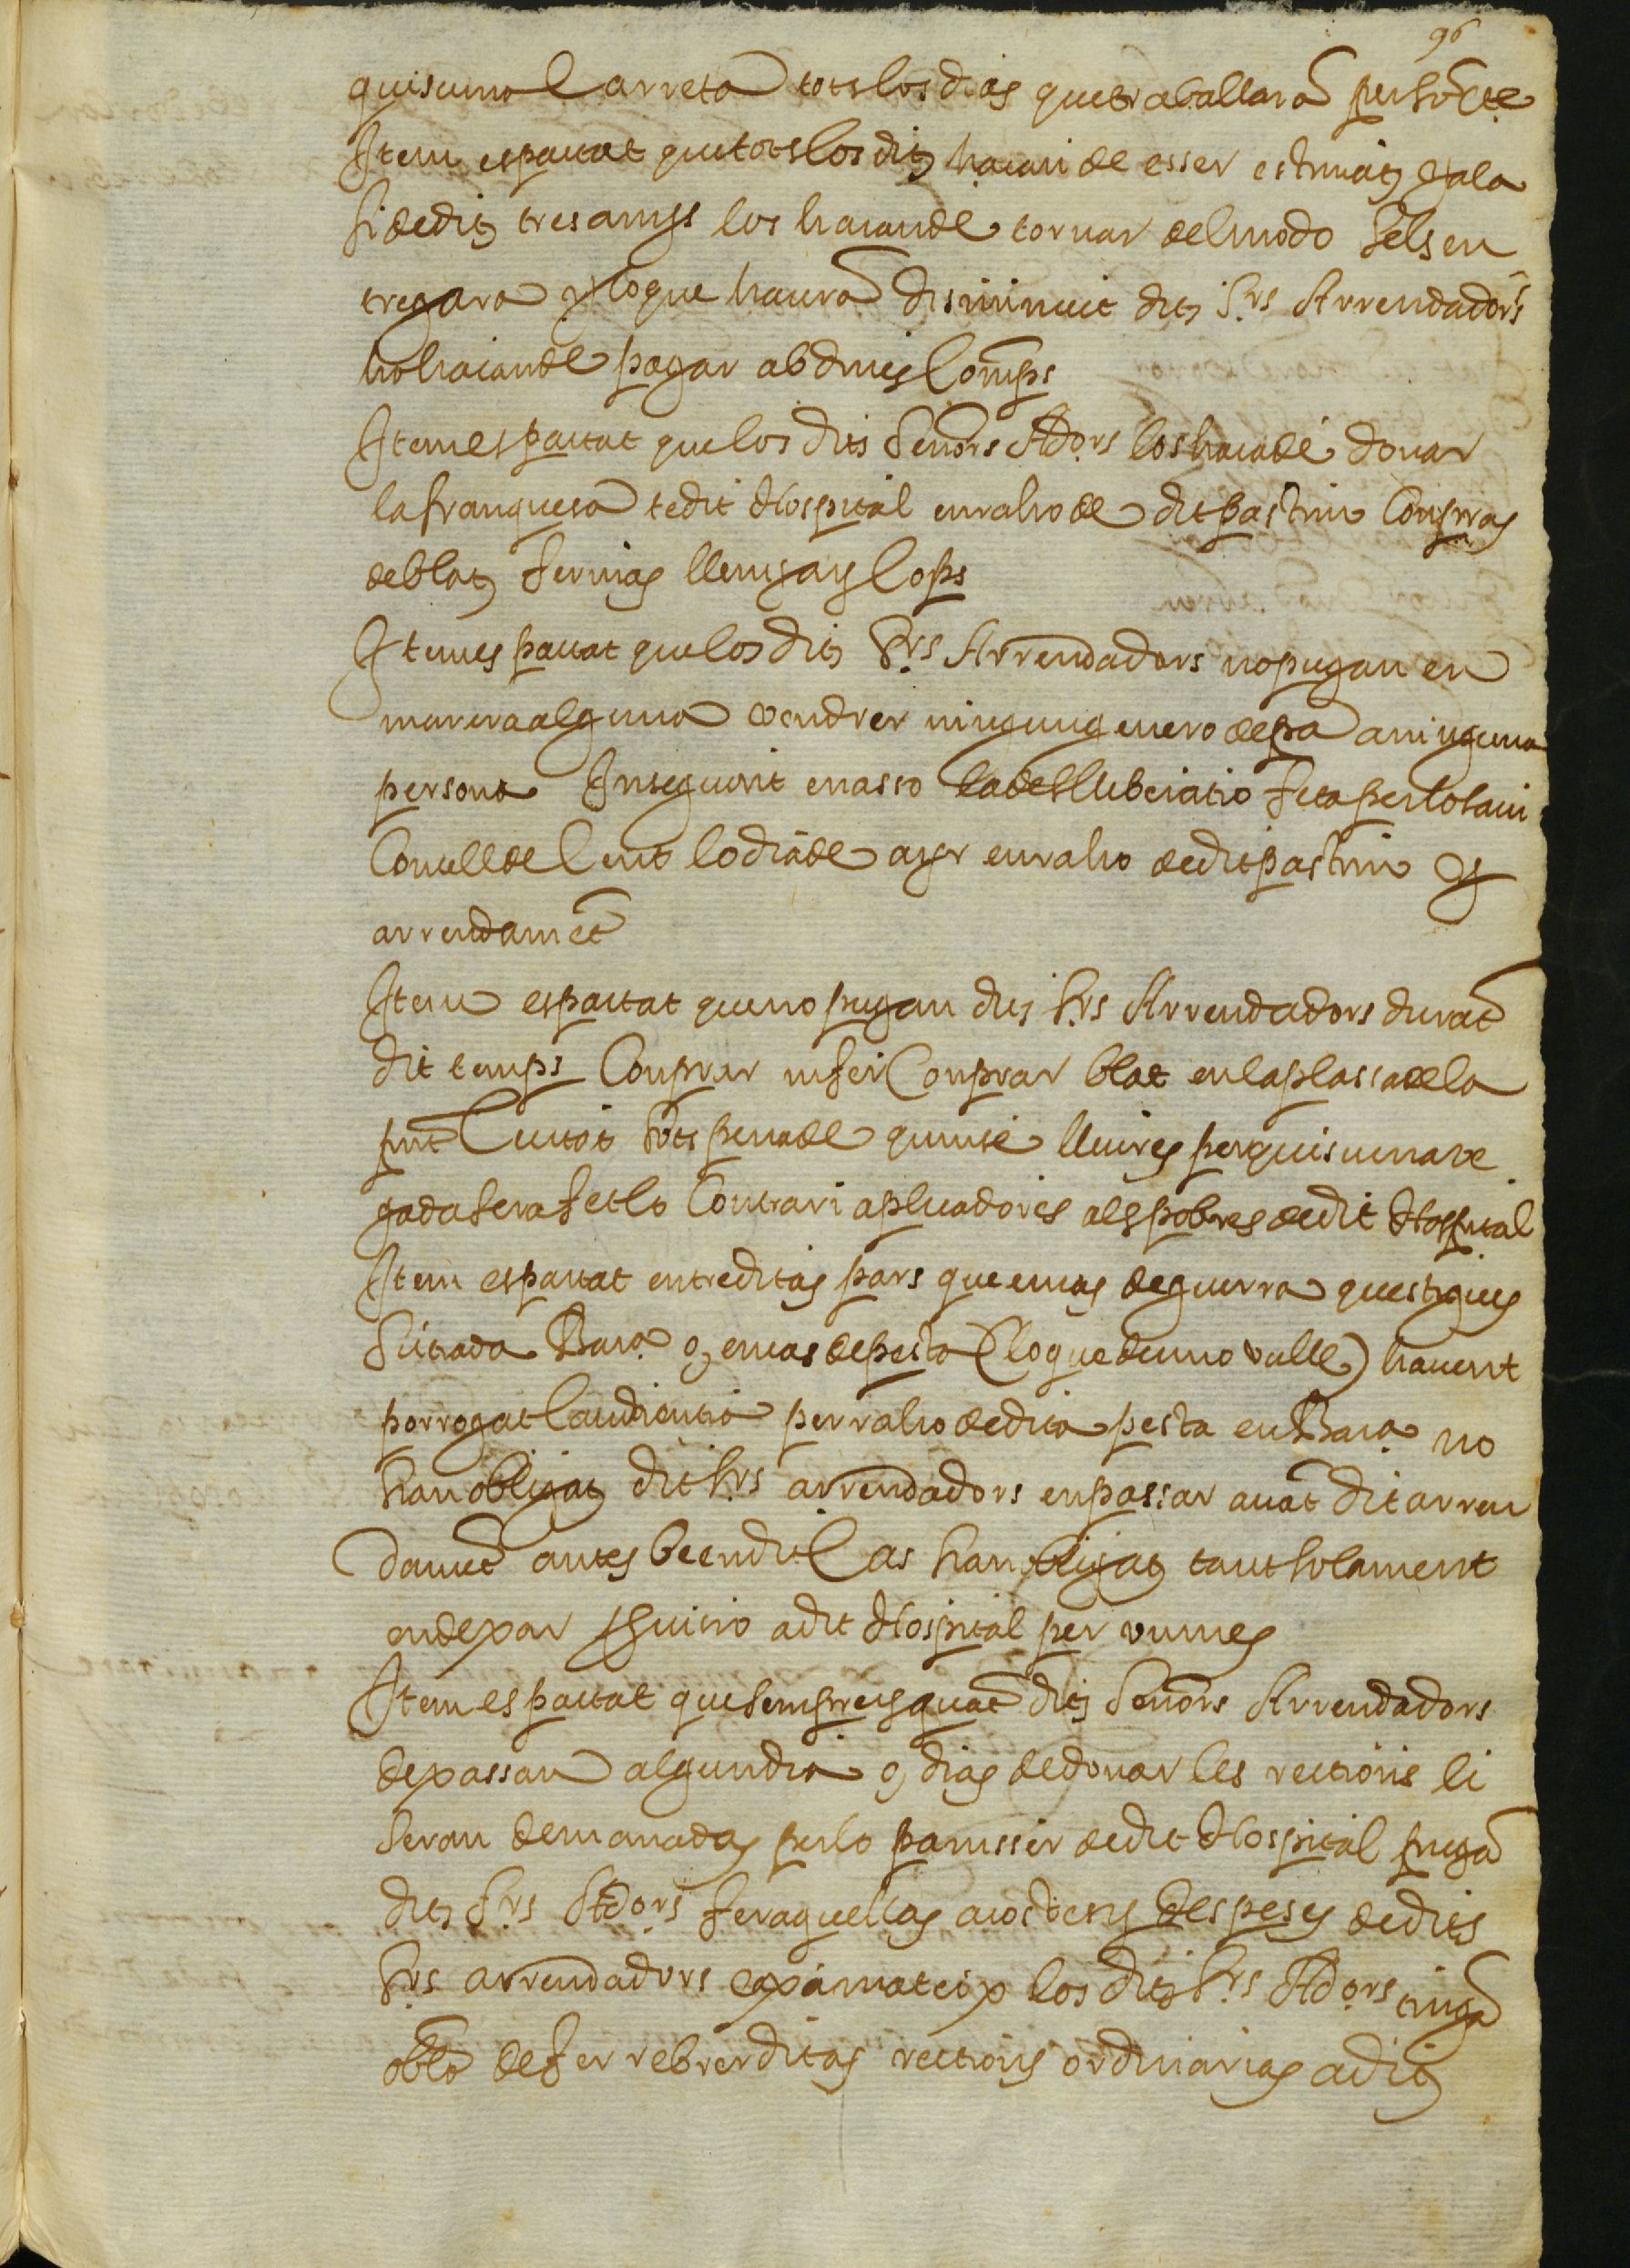 96
quiscuna Carreta tots los dias que traballara per so Cte
Item es pactat que tots los dits haian de esser estimats y a la
fi de dits tres anys los haian de tornar del modo sels en
tregara y lo que haura disminuit dits Srs Arrendadors
ho haian de pagar ab dines Comps
Item es pactat que los dits Señors Adors los haia de donar
la franquesa te dit Hospital en raho de dit pastrim Compras
de blats farinas llenyas y Cops
Item es pactat que los dits Srs Arrendadors no pugan en
manera alguna vendrer ningun genero de pa a ninguna
persona Inseguint en asso la delliberatio feta per lo savi
Consell de Cent lo dia de ayr en raho de dit pastrim y
arrendamet
Item es pactat que no pugan dits Srs Arrendadors durat
dit temps Comprar ni fer Comprar blat en la plassa de la
pnt Ciutat sots pena de quinse lliures per quiscuna ve
gada sera fet lo Contrari aplicadores als pobres de dit Hospital
Item es pactat entre ditas pars que en cas de guerra que stigues
sitiada Bara o, en cas de pesta (lo que deu no vulle) havent
porrogat laudientia per raho de dita pesta en Bara no
sian obligats dit Srs arrendadors en passar avat dit arren
damet antes be en dit Cas sian obligats tant solament
a dexar servici a dit Hospital per un mes
Item es pactat que sempre y quat dits Señors Arrendadors
dexassan algun dia o, dias de donar les rections li
seran demanadas per lo panisser de dit Hospital puga
dits Srs Adors fer aquellas a cost y despeses de dits
Srs arrendadors y axi mateix los dits Srs Adors tinga
oblo de fer rebrer ditas rections ordinarias a dits